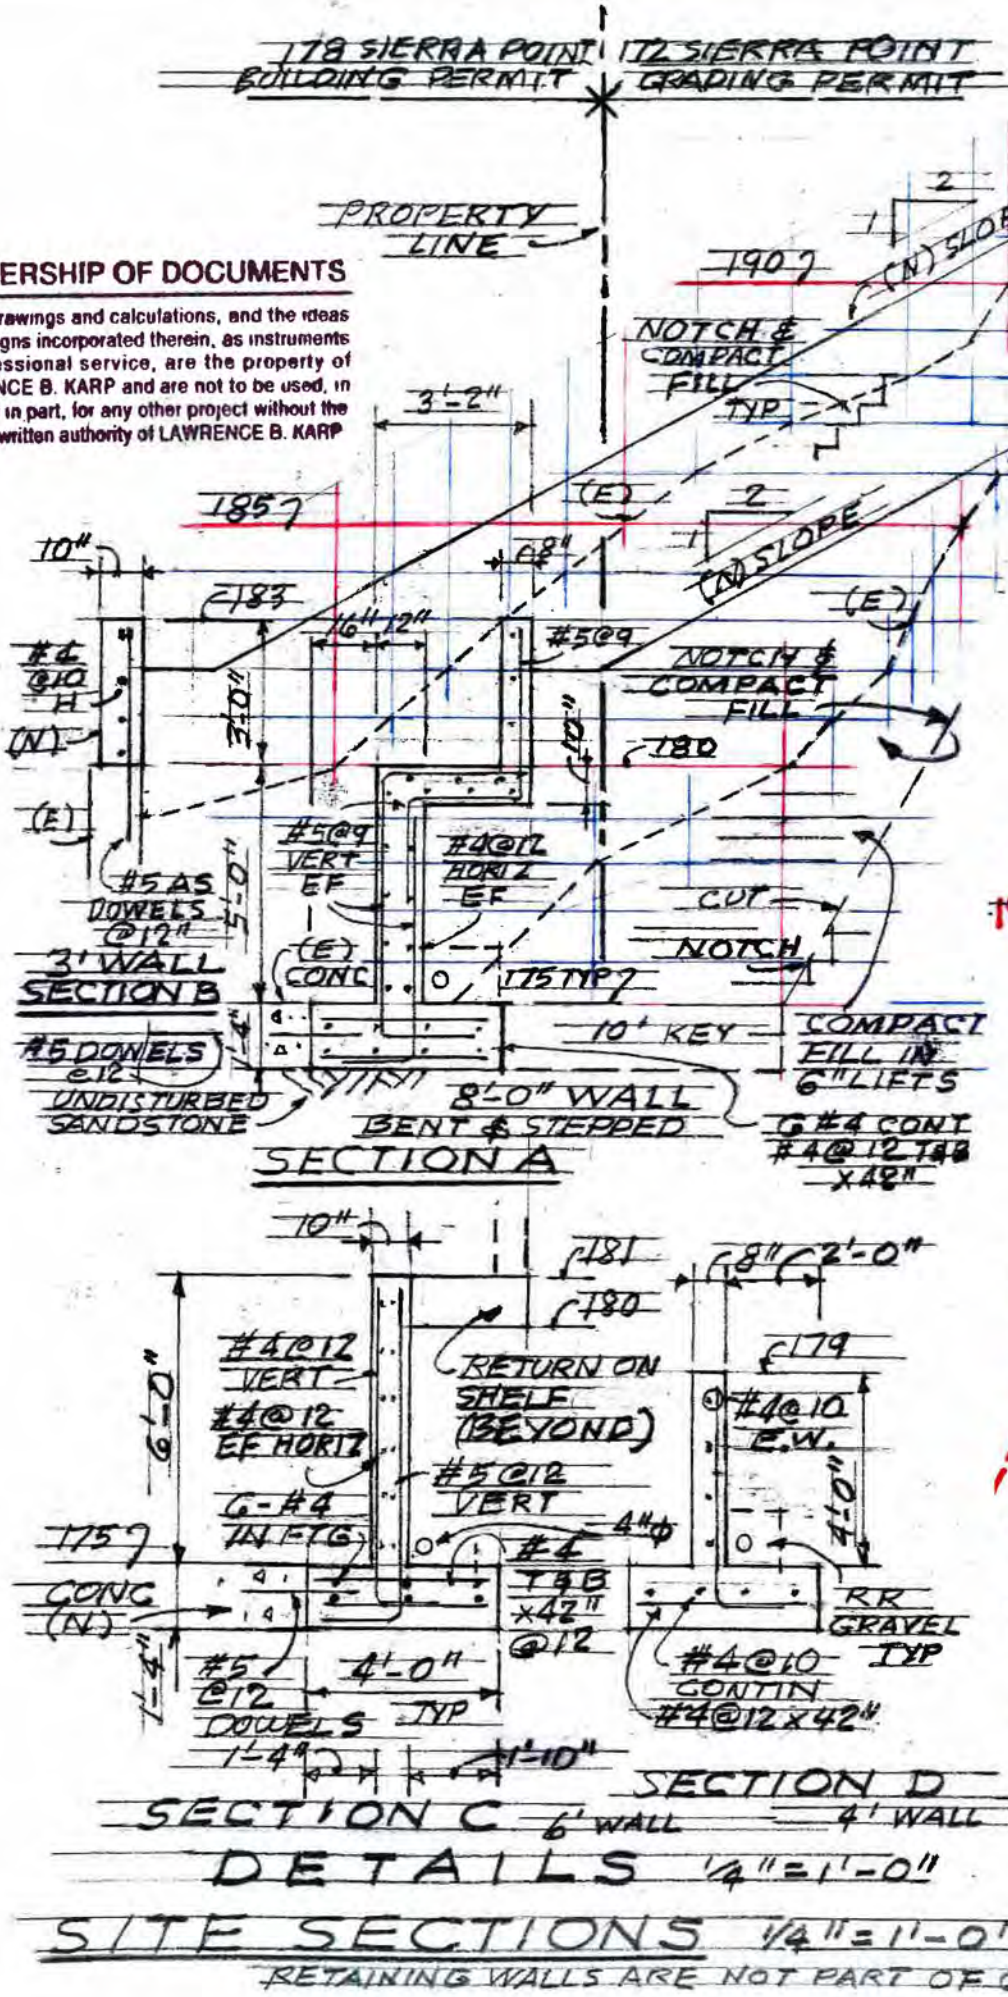 178 SIERRA POINT
BUILDING PERMIT
172 SIERRA POINT
GRADING PERMIT
PROPERTY
LINE
ERSHIP OF DOCUMENTS
rawings and calculations, and the ideas
gns incorporated therein, as instruments
essional service, are the property of
NCE B. KARP and are not to be used, in
in part, for any other project without the
written authority of LAWRENCE B. KARP
2
1
(N) SLOP
190
NOTCH &
COMPACT
FILL
TYP
3'-2"
185
(E)
2
1
(N) SLOPE
10"
8"
183
16" 12"
#5@9
(E)
#4
@10
H
3'-0"
NOTCH &
COMPACT
FILL
(N)
10"
180
(E)
#5@9
VERT
EF
#4@12
HORIZ
EF
#5 AS
DOWELS
@12"
5'-0"
CUT
NOTCH
3' WALL
SECTION B
(E)
CONC
175 TYP
1'-4"
10' KEY
COMPACT
FILL IN
6" LIFTS
#5 DOWELS
@12
UNDISTURBED
SANDSTONE
8'-0" WALL
BENT & STEPPED
SECTION A
6 #4 CONT
#4@12 T&B
X42"
10"
181
180
8" 2'-0"
179
6'-0"
#4@12
VERT
#4@12
EF HORIZ
RETURN ON
SHELF
(BEYOND)
#4@10
E.W.
#5@12
VERT
4'-0"
6-#4
IN FTG
4"ϕ
175
CONC
(N)
#4
T&B
X42"
@12
RR
GRAVEL
TYP
1'-4"
#5
@12
DOWELS
4'-0"
TYP
#4@10
CONTIN
#4@12X42"
1'-4"
1'-10"
SECTION C 6' WALL
SECTION D
4' WALL
DETAILS 1/4"=1'-0"
SITE SECTIONS 1/4"=1'-0"
RETAINING WALLS ARE NOT PART OF